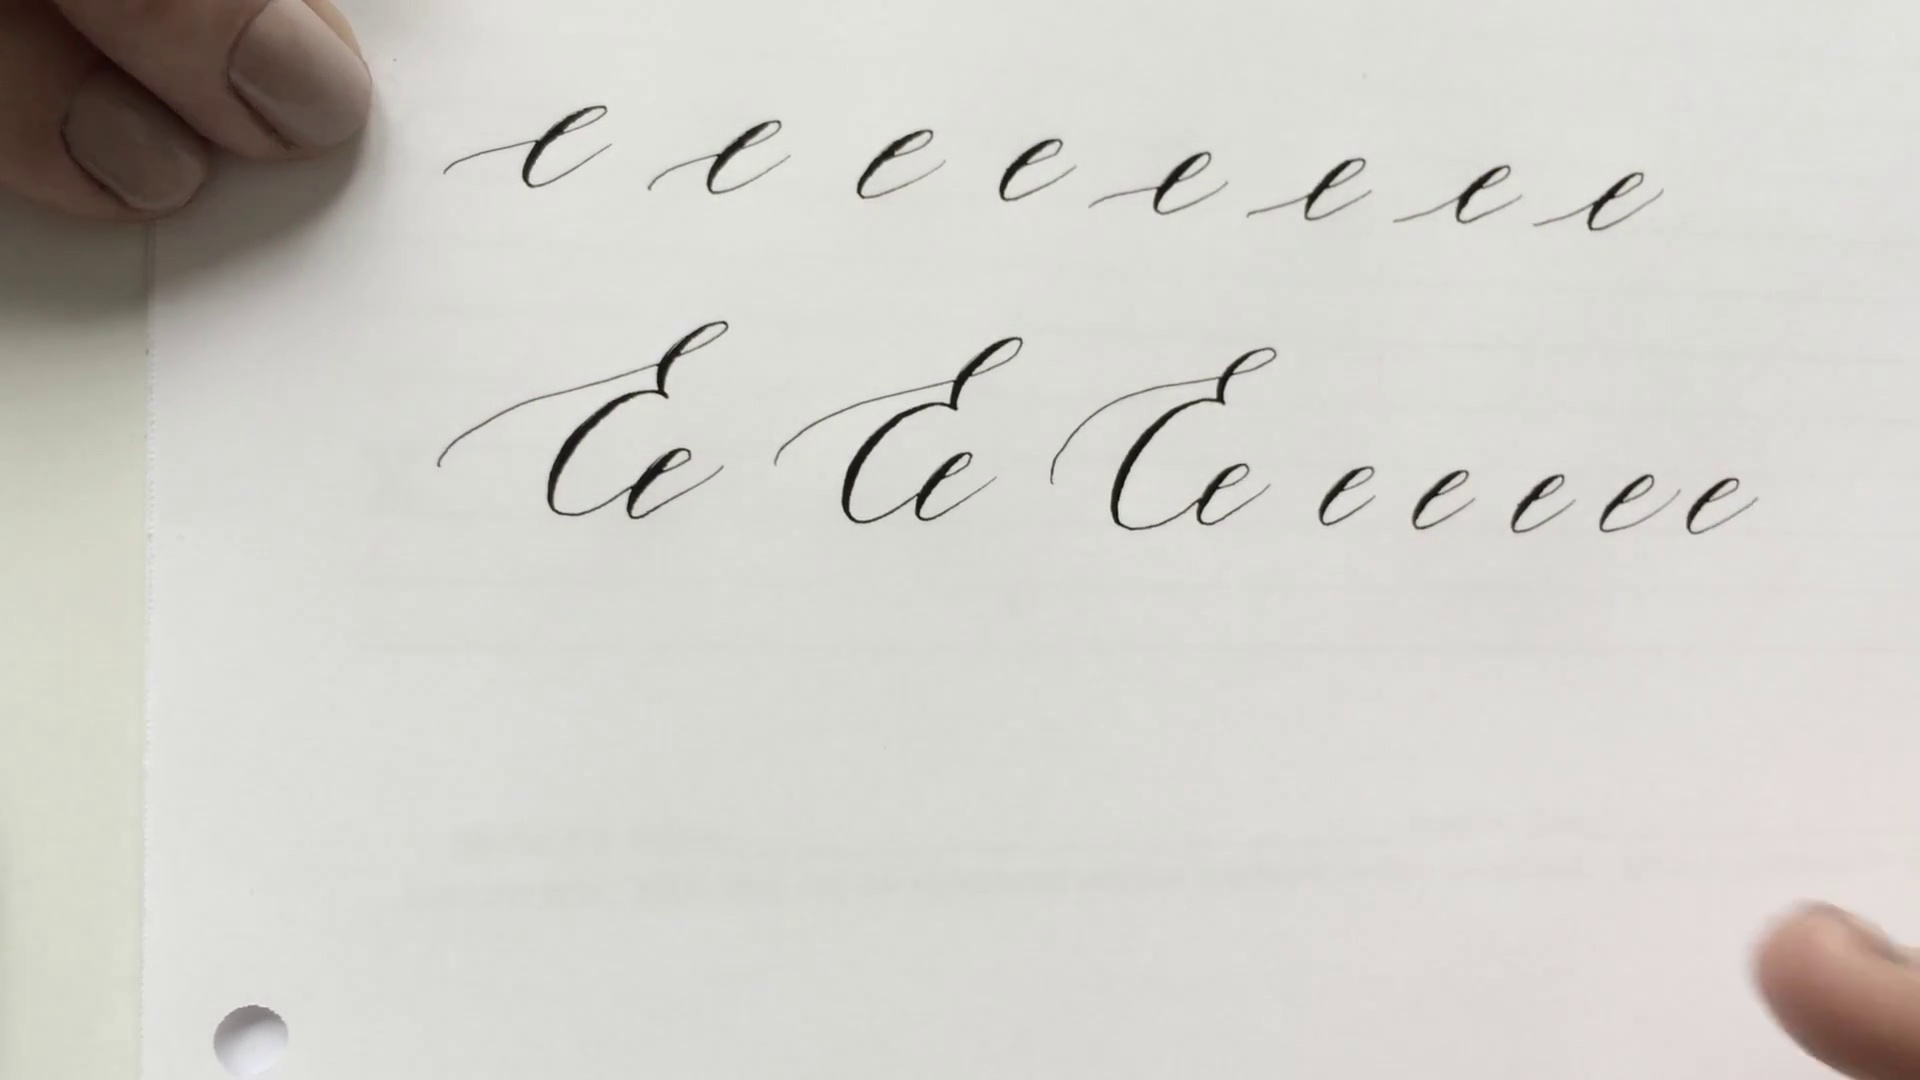 e e e e e e e e
Ee Ee Ee e e e e e